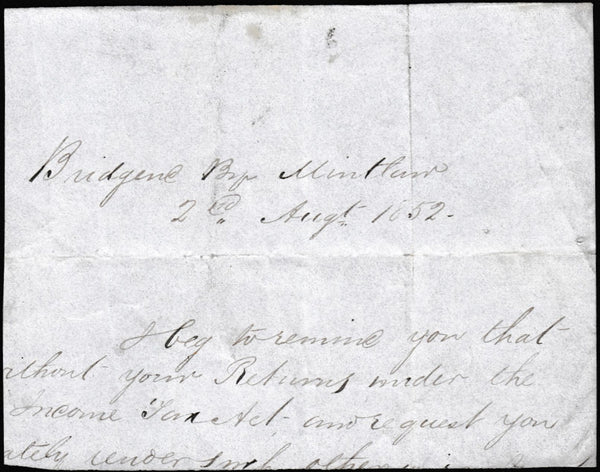 Bridgend By Mintlaw
2nd Augt 1852.
I beg to remind you that
without your Returns under the
Income Tax Act and request you
ately render such other